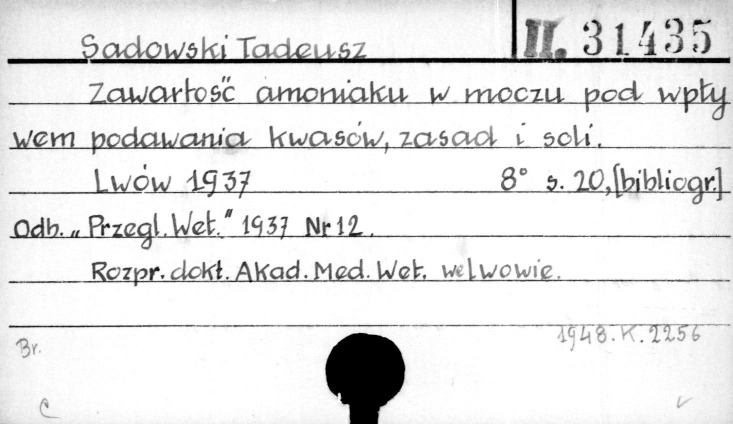 Sadowski Tadeusz II. 31435
Zawartość amoniaku w moczu pod wpły
wem podawania kwasów, zasad i soli.
Lwów 1937 8° s. 20, [bibliogr.]
Odb. „Przegl. Wet." 1937 Nr 12.
Rozpr. dokt. Akad. Med. Wet. we Lwowie.
1948. K. 2256
Br.
C